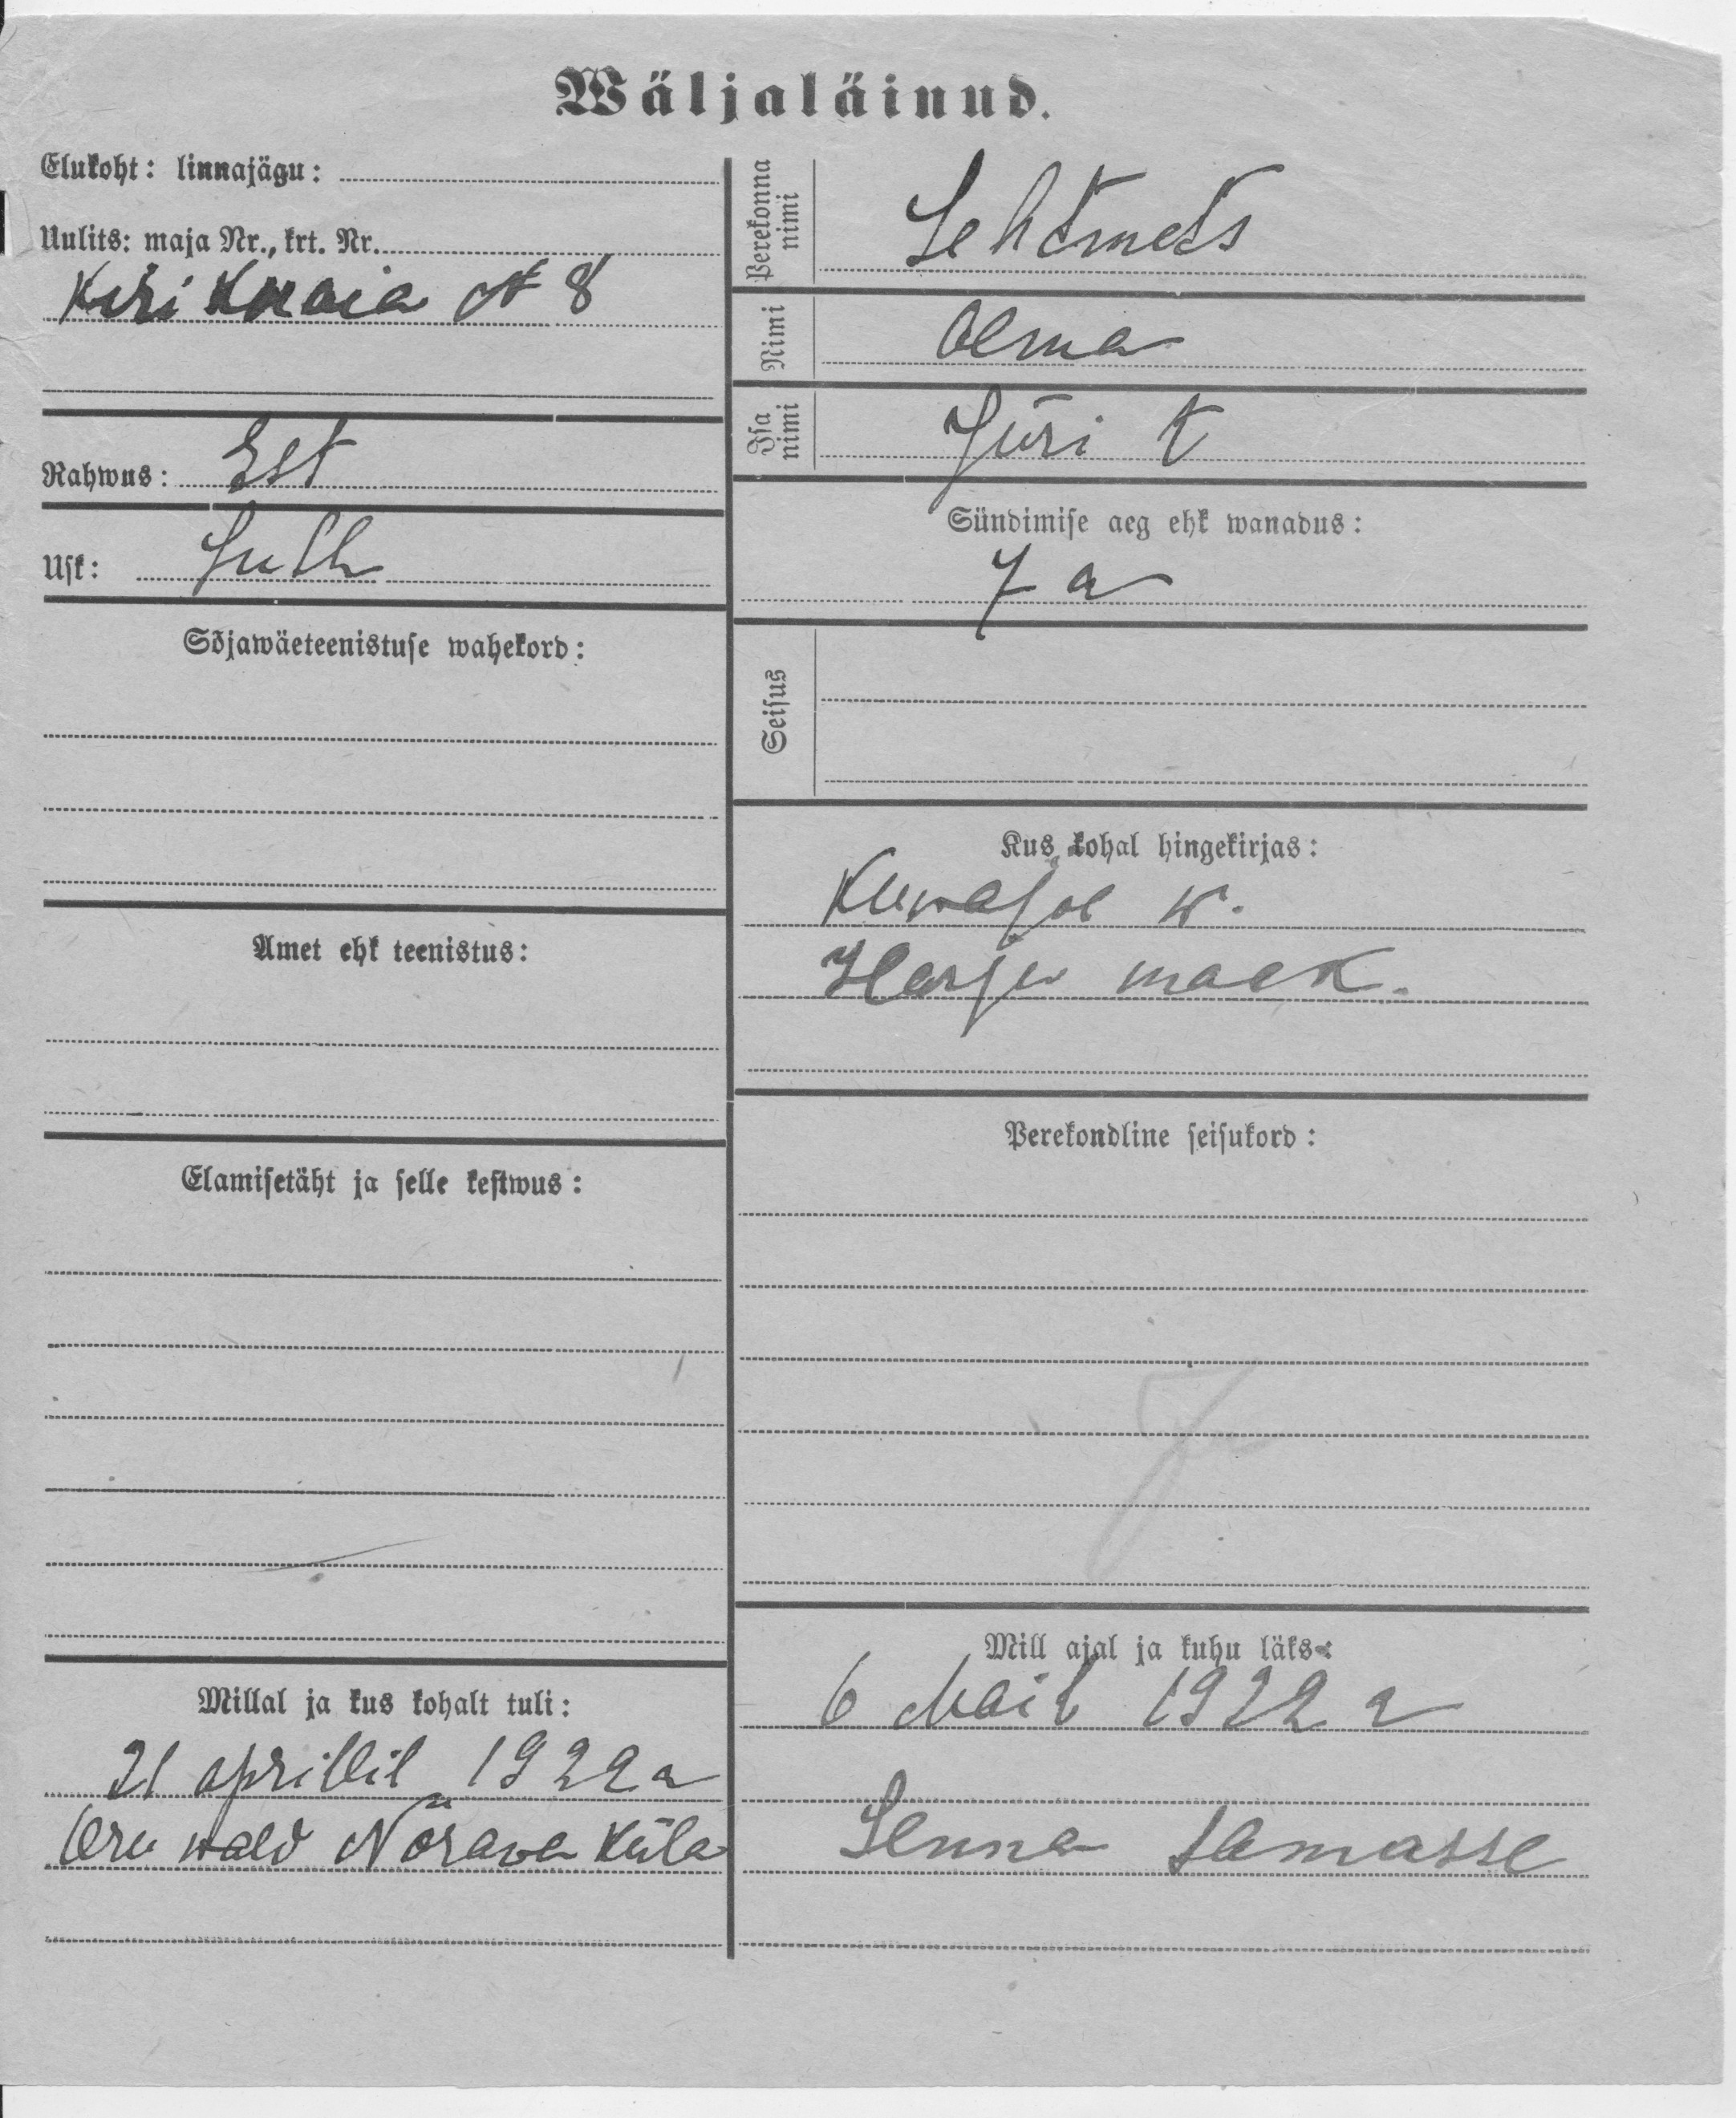 Wäljaläinud.
Elukoht: linnajägu:
Uulits: maja Nr., krt. Nr.
Kirikuaia № 8
Rahwus: Est
Usk: Luth
Sõjawäeteenistuse wahekord:
Amet ehk teenistus:
Elamisetäht ja selle kestwus:
Millal ja kus kohalt tuli:
21 aprillil 1922 a
Oru wald Nõrava küla
Perekonna nimi
Lehtmets
Nimi
Olma
Isa nimi
Jüri t
Sündimise aeg ehk wanadus:
7 a
Seisus
Kus kohal hingekirjas:
Kuiwajoe w.
Harju maak.
Perekondline seisukord:
Mill ajal ja kuhu läks:
6 Mail 1922 a
Senna samasse